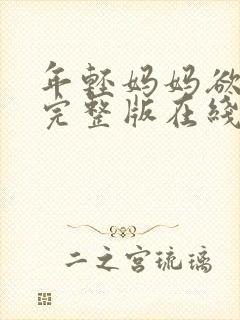 年轻妈妈欲
完整版在綫
二之宫琉璃